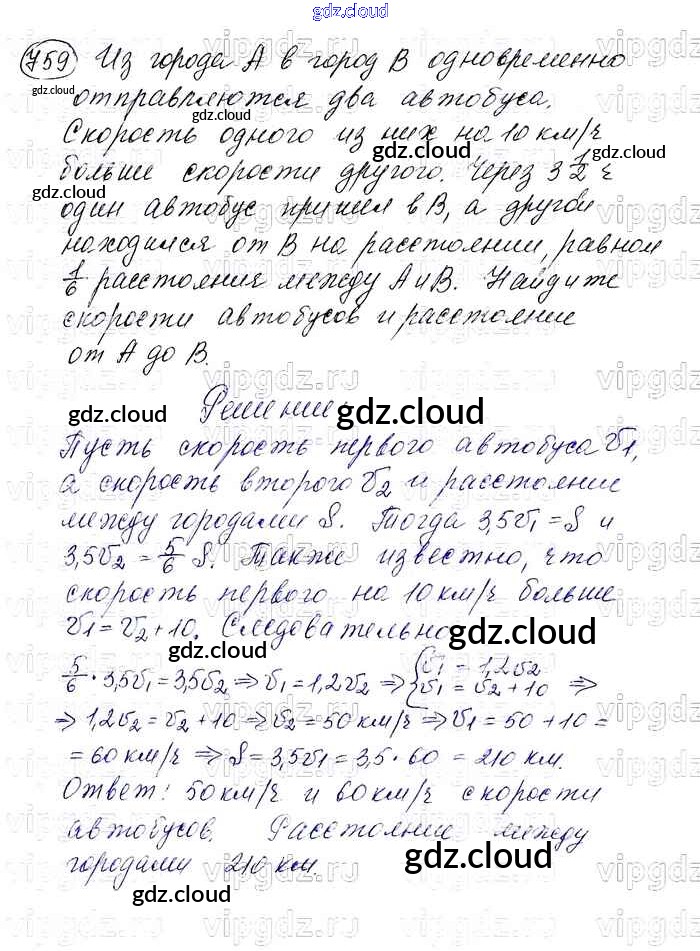 gdz.cloud
759 Из города А в город В одновременно
отправляются два автобуса.
Скорость одного из них на 10 км/ч
больше скорости другого. Через 3 1/2 ч
один автобус пришел в В, а другой
находился от В на расстоянии, равном
1/6 расстояния между А и В. Найдите
скорости автобусов и расстояние
от А до В.
Решение.
Пусть скорость первого автобуса v1,
а скорость второго v2 и расстояние
между городами S. Тогда 3,5v1 = S и
3,5v2 = 5/6 S. Также известно, что
скорость первого на 10 км/ч больше
v1 = v2 + 10. Следовательно
5/6 · 3,5v1 = 3,5v2 ⇒ v1 = 1,2v2 ⇒ { v1 = 1,2v2 v1 = v2 + 10 ⇒
⇒ 1,2v2 = v2 + 10 ⇒ v2 = 50 км/ч ⇒ v1 = 50 + 10 =
= 60 км/ч ⇒ S = 3,5v1 = 3,5 · 60 = 210 км.
Ответ: 50 км/ч и 60 км/ч скорости
автобусов. Расстояние между
городами 210 км.
gdz.cloud